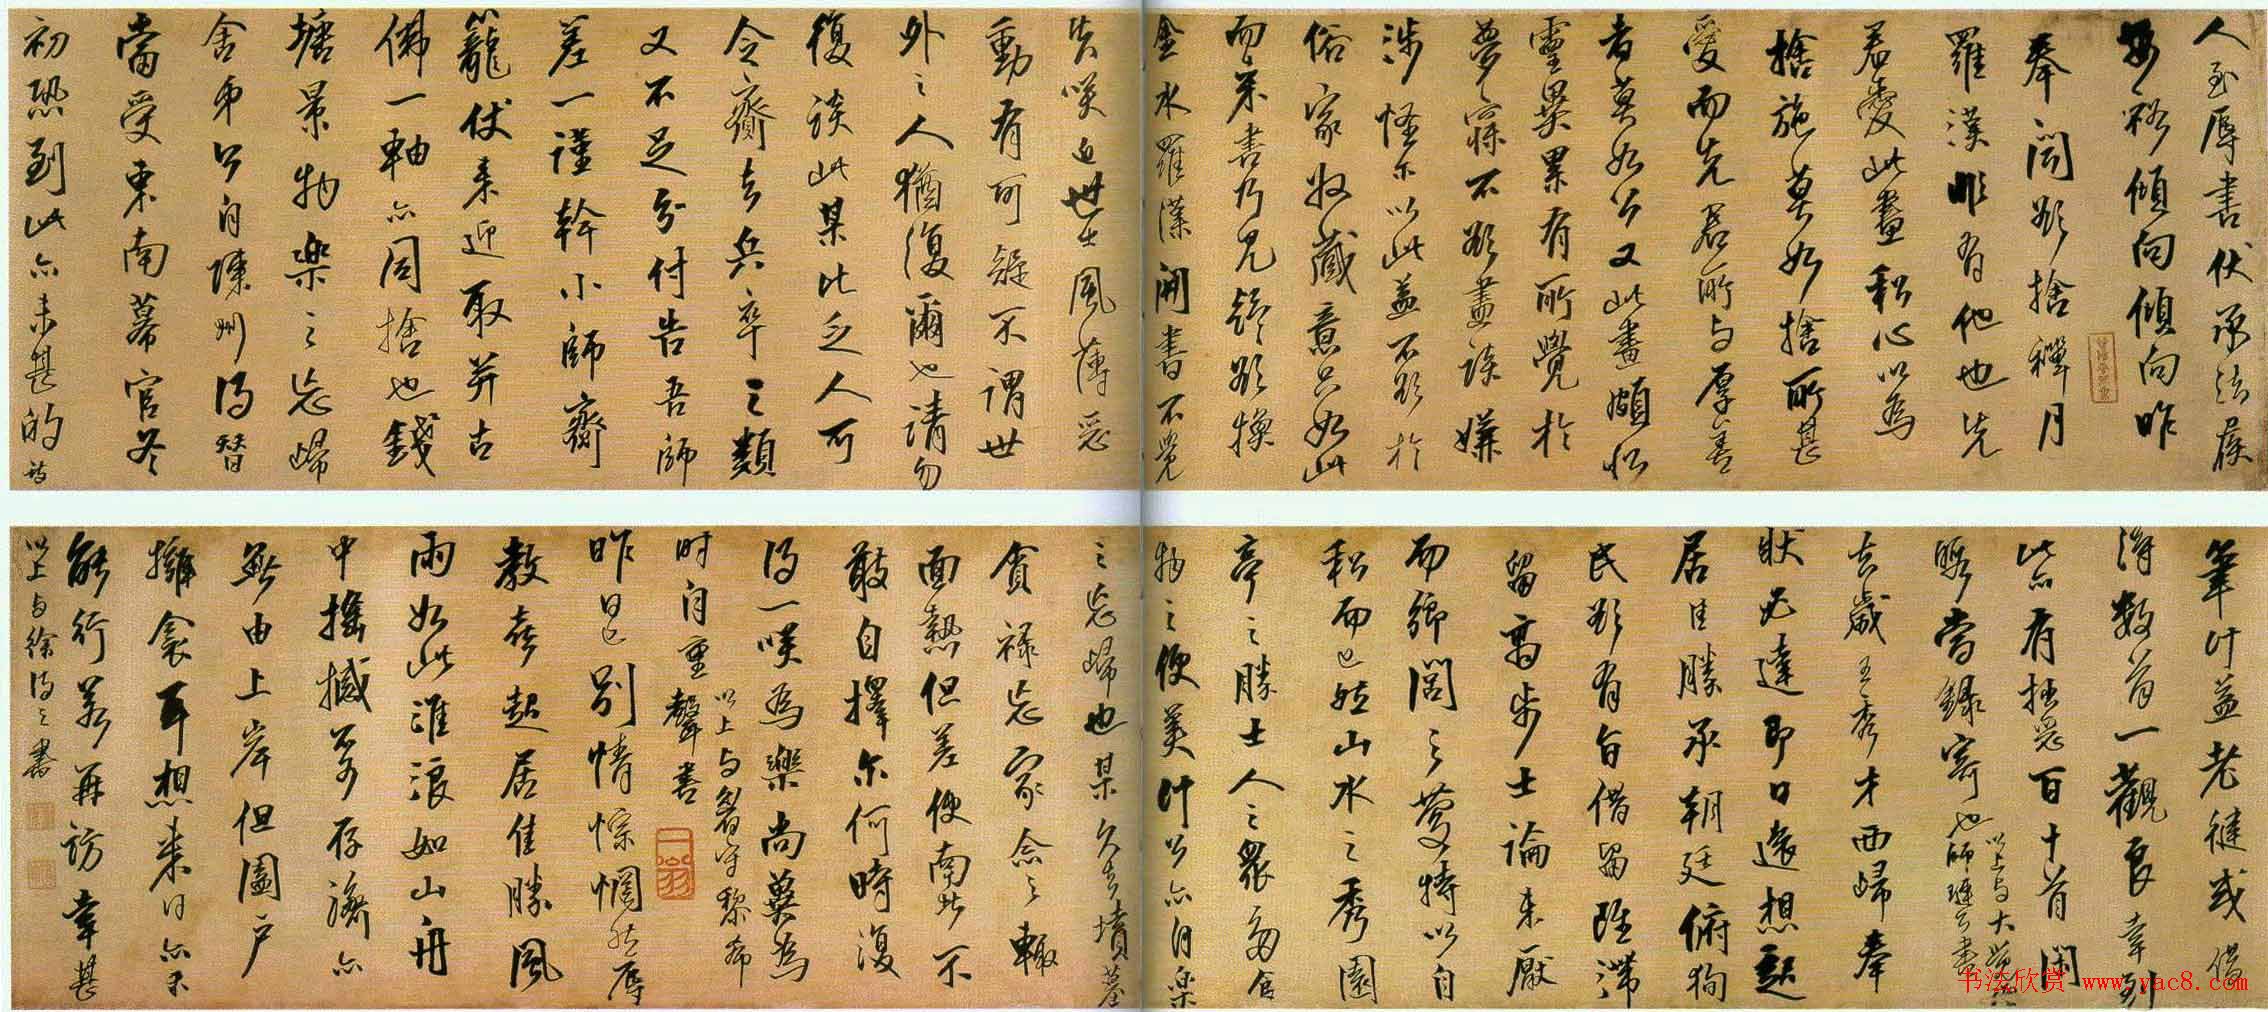 人至辱書伏承法履
安裕傾向傾向昨
奉聞欲捨禪月
羅漢非有他也先
君愛此畫私心以為
捨施莫如捨所甚
愛而先君所与厚善
者莫如公又此畫頗似
靈異累有所覺於
夢寐不欲盡談嫌
涉怪尓以此益不欲於
俗家收藏意只如此
而来書乃見疑欲換
金水羅漢開書不覺
失咲近世士風薄惡
動有可疑不謂世
外之人猶復爾也請勿
復談此某比乏人可
令齎去兵卒之類
又不足分付告吾師
差一謹幹小師齎
籠仗来迎取并古
佛一軸亦同捨也錢
塘景物樂之忘歸
舍弟今自陳州得替
當受東南幕官冬
初恐到此亦未甚的詩
筆計益老健或借
得數首一觀良幸到
此亦有拙惡百十首閑
暇當錄寄也
以上与大覺禪
師璉公書
去歲王秀才西歸奉
狀必達即日遠想起
居佳勝承朝廷俯徇
民欲有旨借留既滯
留高步士論未厭
而鄉閭之慶特以自
私而已然山水之秀園
亭之勝士人之衆多食
物之便美計公亦自樂
之忘歸也某久去墳墓
貪祿忘家念之輒
面熱但差使南北不
敢自擇尓何時復
得一咲為樂尚冀為
時自重
以上与眉守黎希
聲書
昨日已別情悰惘然辱
教喜起居佳勝風
雨如此淮浪如山舟
中搖撼不可存濟亦
無由上岸但闔戶
擁衾耳想来日亦未
能行若再訪幸甚
以上与徐得之書
书法欣赏 www.yac8.com